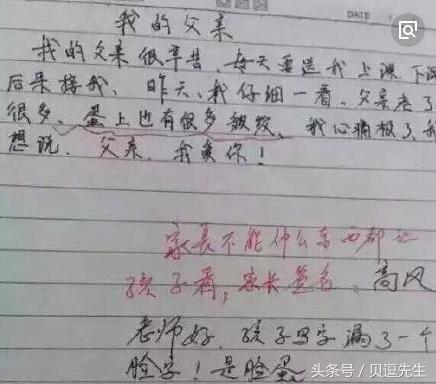 DATE
我的父亲
我的父亲很辛苦 每天要送我上课 下课
后来接我, 昨天、我仔细一看、父亲老了
很多、蛋上也有很多皱纹、我心痛极了,我
想说, 父亲, 我爱你!
家长不能什么东西都让
孩子看, 家长签名: 高风
老师好, 孩子写字漏了一个
脸字! 是脸蛋
头条号 / 贝逗先生